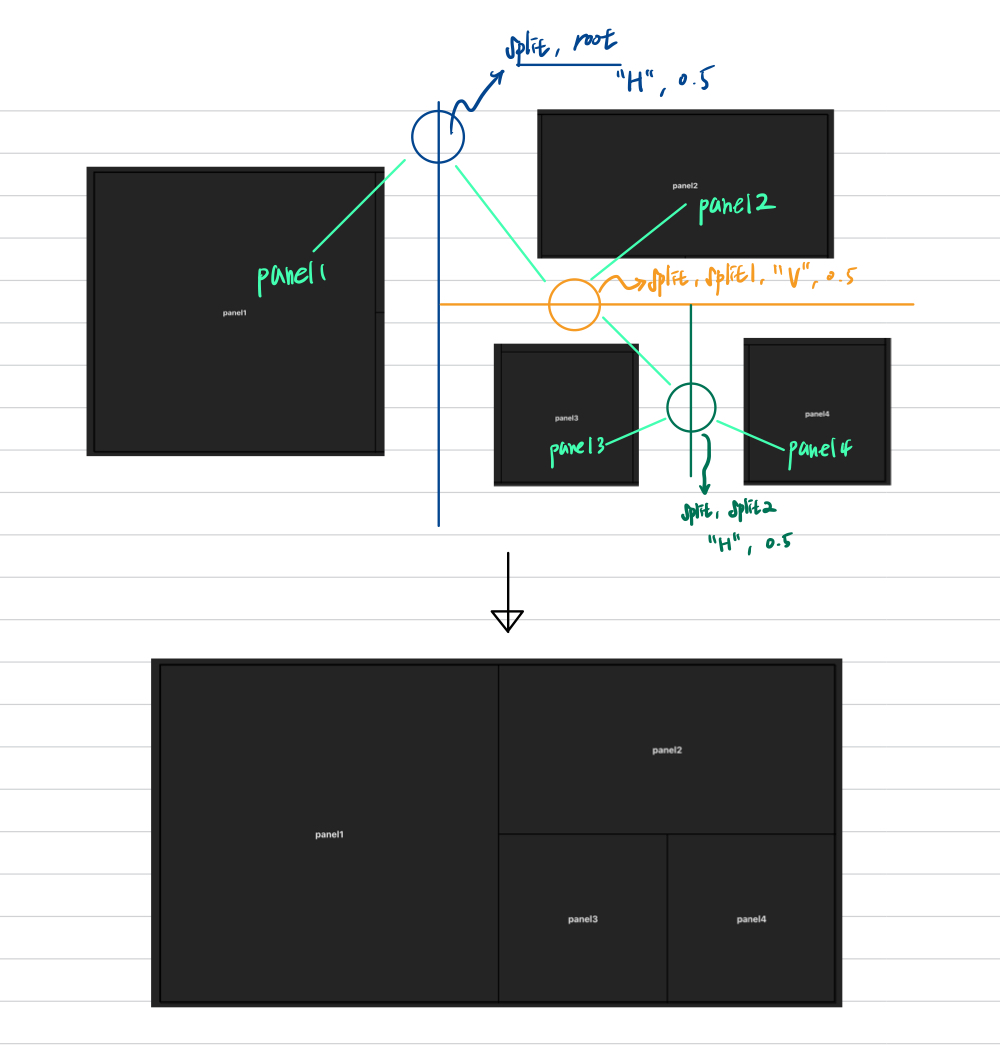 split, root
"H", 0.5
panel2
panel2
panel1
panel1
split, split1, "V", 0.5
panel3
panel4
panel3
panel4
split, split2
"H", 0.5
panel2
panel1
panel3
panel4